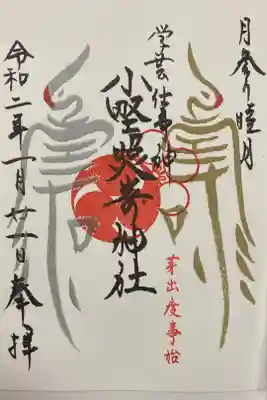 月参り睦月
芽出度事始
学芸仕事神
小野照崎神社
令和二年一月廿一日奉拝